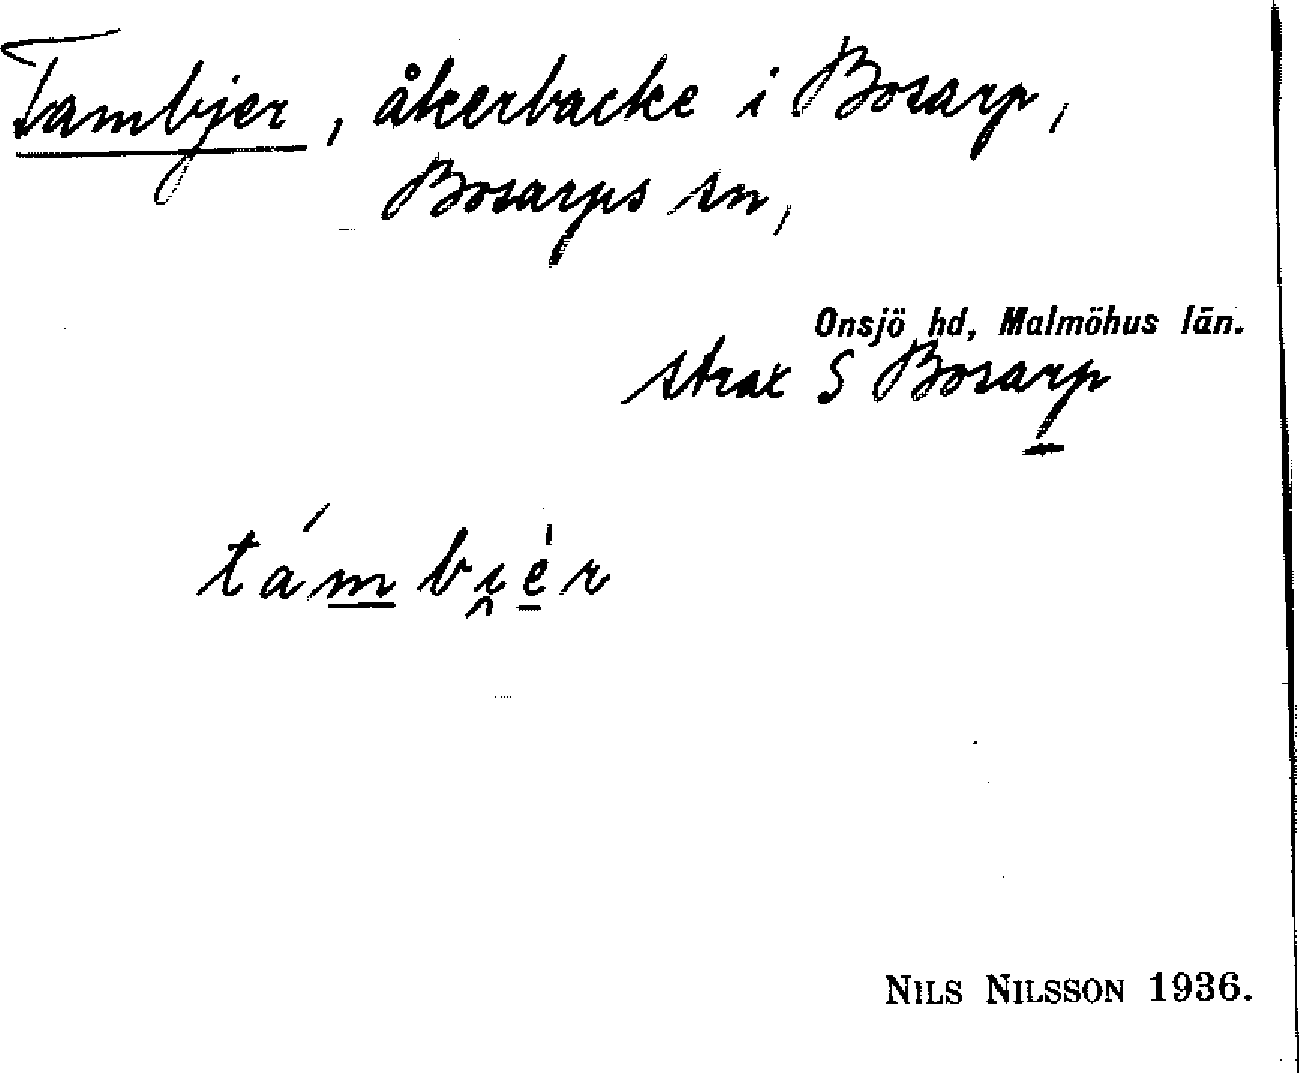 Tambjer, åkerbacke i Bosarp,
Bosarps sn,
Onsjö hd, Malmöhus län.
strax S Bosarp
támbi̯èr
NILS NILSSON 1936.